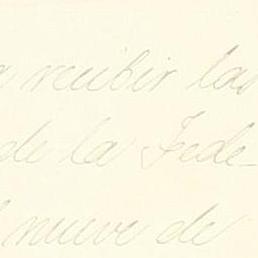 a recibir las
de la Fede-
l nueve de